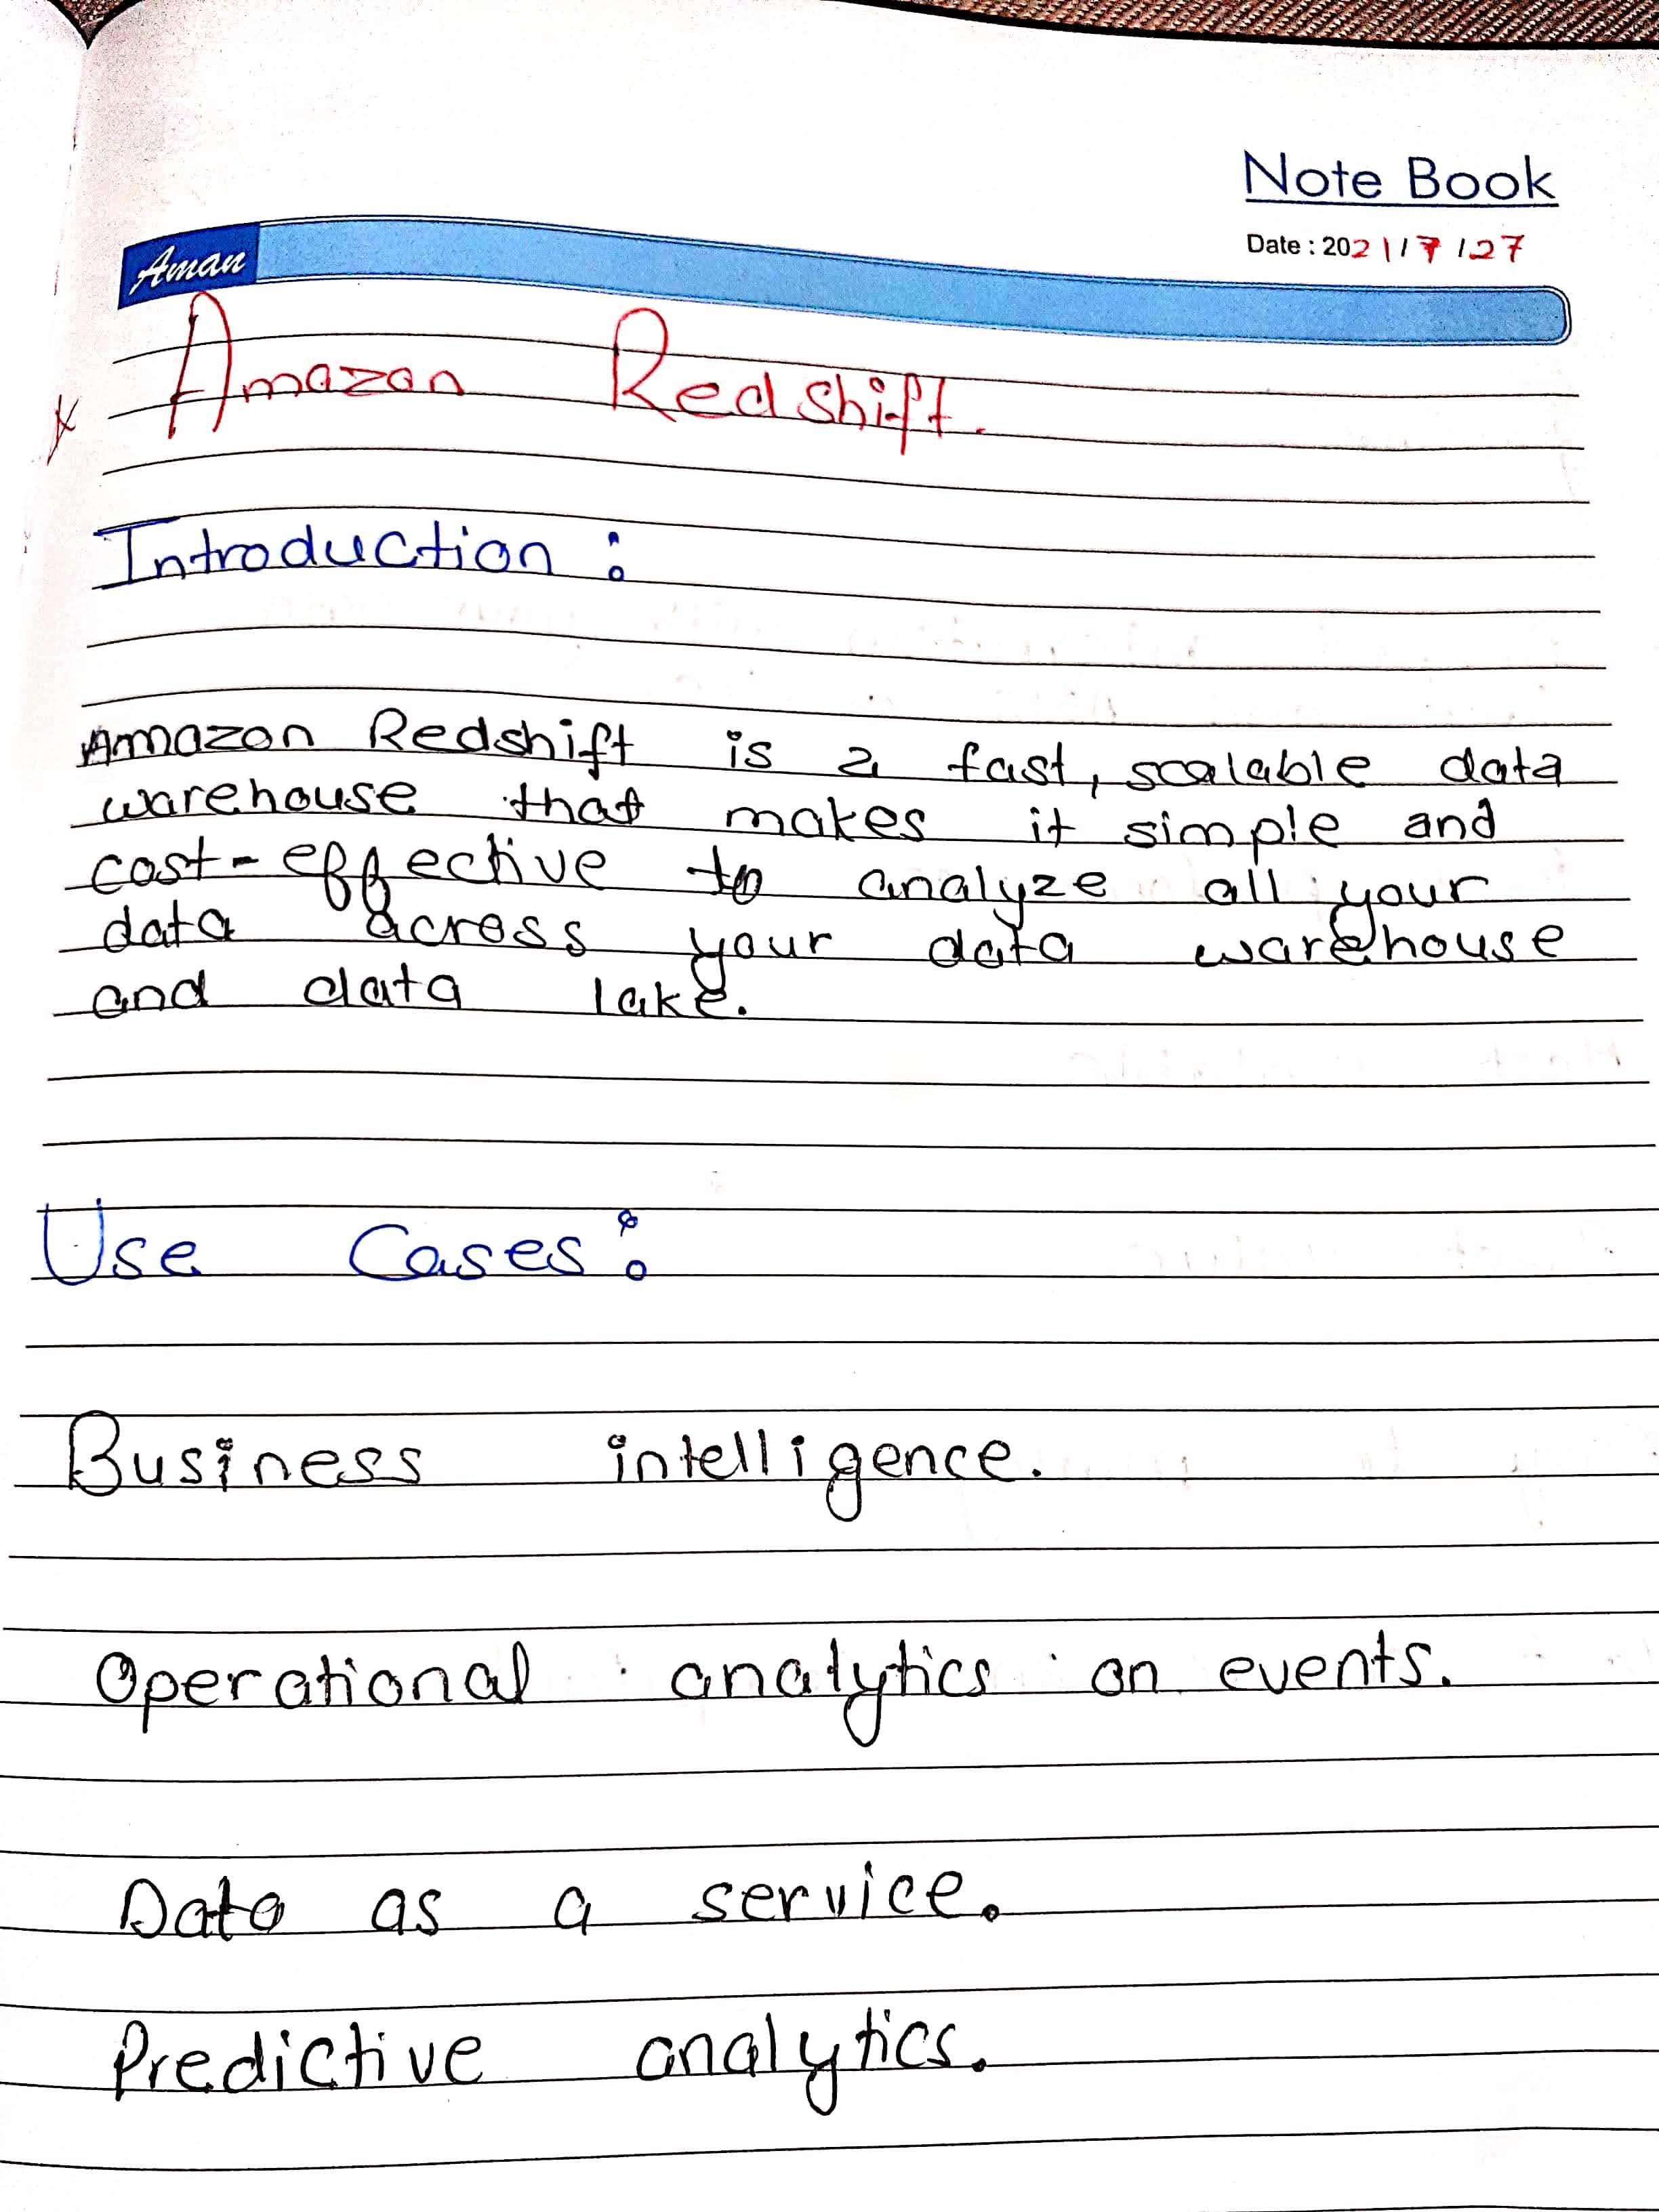 Note Book
Date : 2021/7/27
Aman
Amazon Redshift.
Introduction :
Amazon Redshift is a fast, scalable data
warehouse that makes it simple and
cost-effective to analyze all your
data across your data warehouse
and data lake.
Use Cases :
Business intelligence.
Operational analytics on events.
Data as a service.
Predictive analytics.